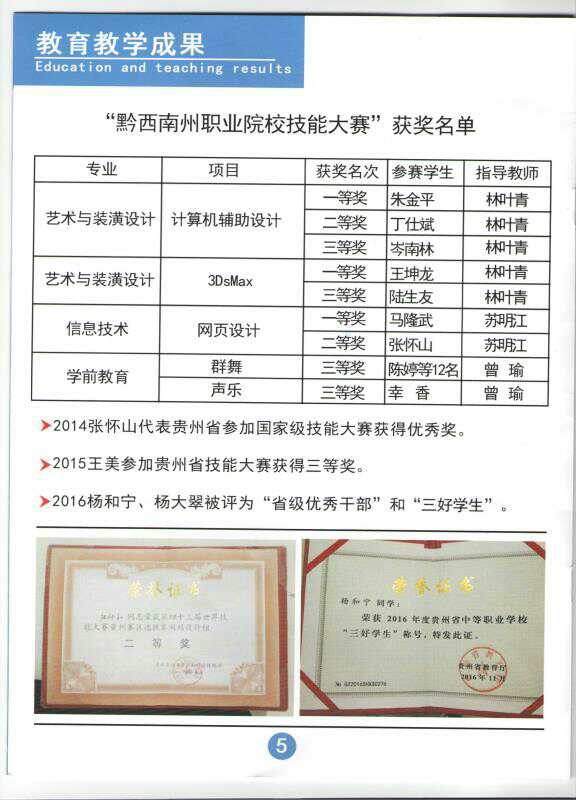 教育教学成果
Education and teaching results
“黔西南州职业院校技能大赛”获奖名单
专业 项目 获奖名次 参赛学生 指导教师
艺术与装潢设计 计算机辅助设计 一等奖 朱金平 林叶青
二等奖 丁仕斌 林叶青
三等奖 岑南林 林叶青
艺术与装潢设计 3DsMax 一等奖 王坤龙 林叶青
三等奖 陆生友 林叶青
信息技术 网页设计 一等奖 马隆武 苏明江
二等奖 张怀山 苏明江
学前教育 群舞 三等奖 陈婷等12名 曾瑜
声乐 三等奖 幸香 曾瑜
➤2014张怀山代表贵州省参加国家级技能大赛获得优秀奖。
➤2015王美参加贵州省技能大赛获得三等奖。
➤2016杨和宁、杨大翠被评为“省级优秀干部”和“三好学生”。
荣誉证书
同志荣获第四十三届世界技
能大赛贵州赛区选拔赛网站设计组
二等奖
荣誉证书
杨和宁 同学：
荣获 2016 年度贵州省中等职业学校
“三好学生”称号，特发此证。
贵州省教育厅
2016 年 11 月
5